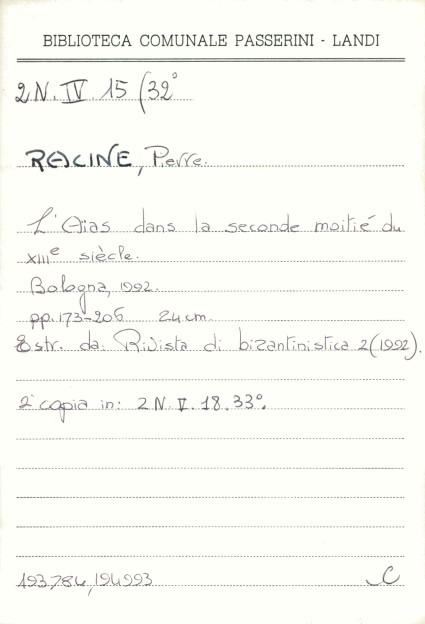 BIBLIOTECA COMUNALE PASSERINI - LANDI
2 N. IV. 15 (32°
RACINE, Pierre.
L'Aias dans la seconde moitié du
XIIIe siècle.
Bologna, 1992.
pp. 173-206 24 cm.
Estr. da: Rivista di bizantinistica 2 (1992).
2ª copia in: 2 N. V. 18. 33°.
193784, 194993
C